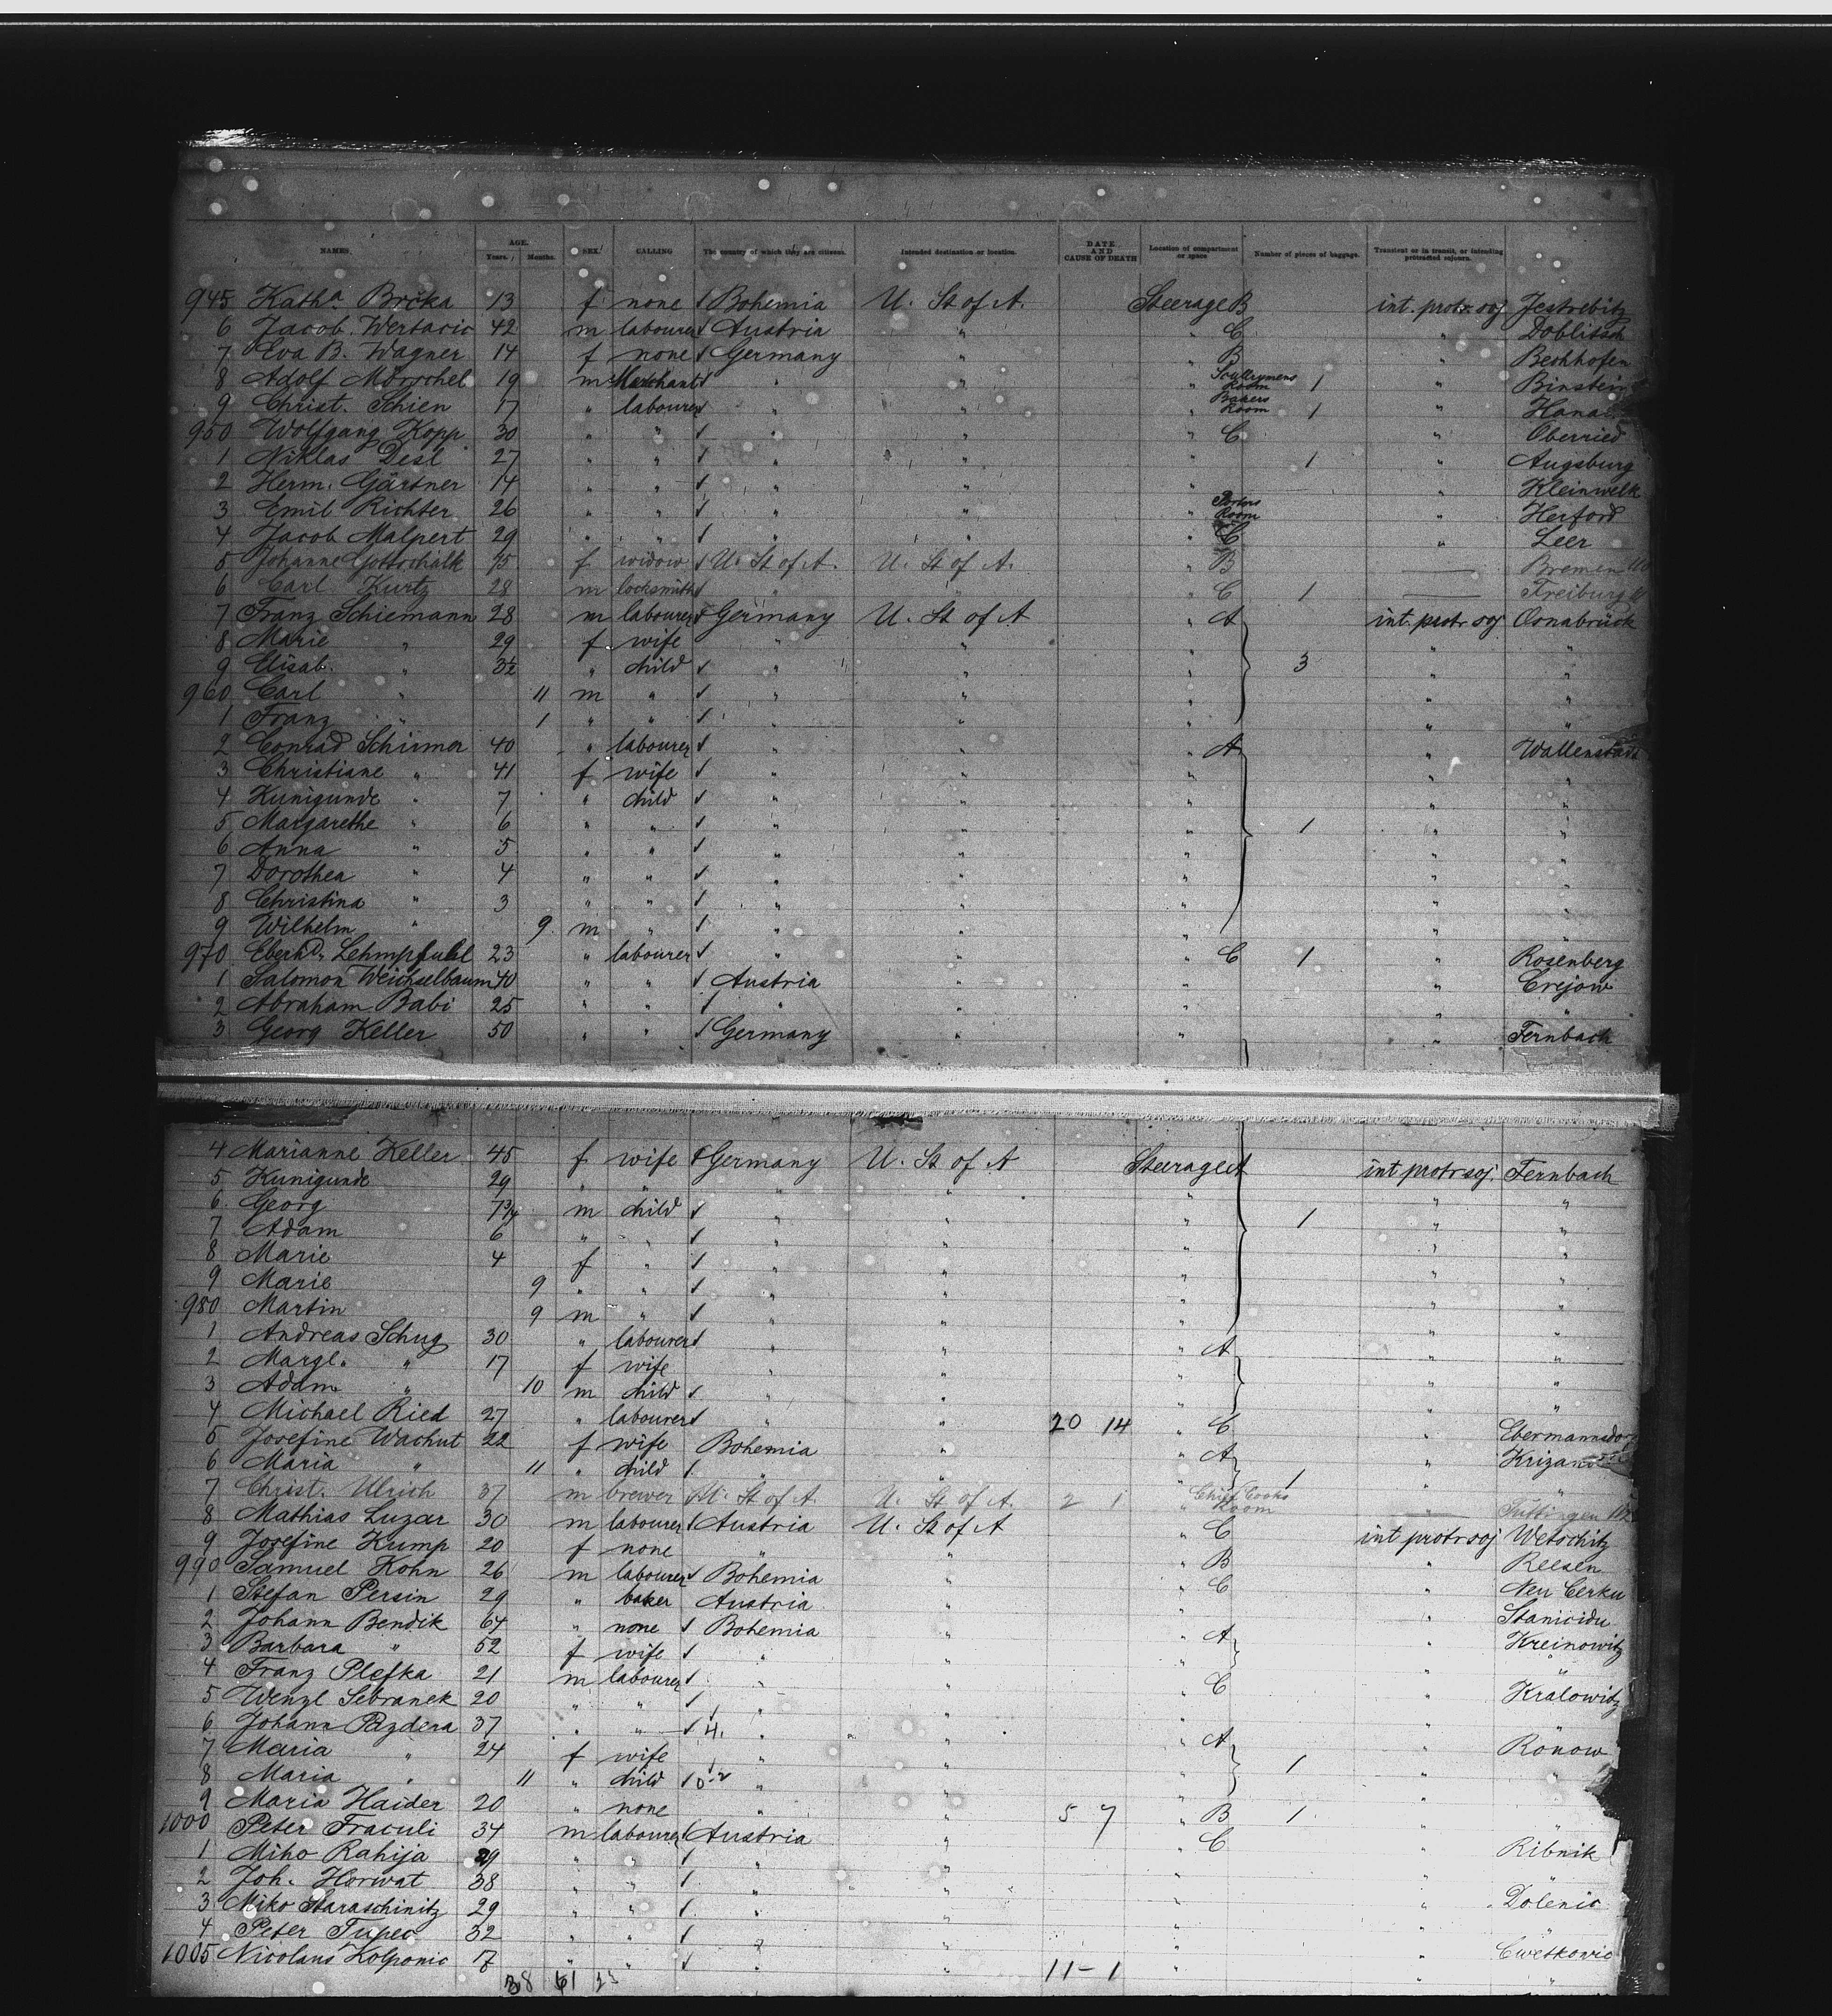 NAMES. AGE. Years. Months. SEX. CALLING The country of which they are citizens. Intended destination or location. DATE AND CAUSE OF DEATH Location of compartment or space Number of pieces of baggage. Transient or in transit, or intending protracted sojourn.
945 Katha Brčka 13 f none Bohemia U. St of A. Steerage B int. protr. soj Jestrebitz
6 Jacob Wertacic 42 m labourer Austria " " C " Doblitsch
7 Eva B. Wagner 14 f none Germany " " B " Bechhofen
8 Adolf Morschel 19 m Marchant " " " Scullrymens Room 1 " Binstein
9 Christ. Schien 17 " labourer " " " Bakers Room 1 " Hanau
950 Wolfgang Kopp 30 " " " " " C " Oberried
1 Niklas Desl 27 " " " " " 1 " Augsburg
2 Herm. Gärtner 14 " " " " " " Kleinwelk
3 Emil Richter 26 " " " " " Porters Room " Herford
4 Jacob Malpert 29 " " " " " C " Leer
5 Johanne Gottschalk 75 f widow U. St of A. U. St of A. " B — Bremen
6 Carl Kurtz 28 m locksmith " " " C 1 — Freiburg
7 Franz Schiemann 28 m labourer Germany U. St of A " A int. protr soj Osnabrück
8 Marie " 29 f wife " " " " "
9 Elisab. " 3½ " child " " " 3 " "
960 Carl " 11 m " " " " " "
1 Franz " 1 " " " " " " "
2 Conrad Schirmer 40 " labourer " " " A " Wallenstadt
3 Christiane " 41 f wife " " " " "
4 Kunigunde " 7 " child " " " " "
5 Margarethe " 6 " " " " " 1 " "
6 Anna " 5 " " " " " " "
7 Dorothea " 4 " " " " " " "
8 Christina " 3 " " " " " " "
9 Wilhelm " 9 m " " " " " "
970 Eberhd. Lehmpfuhl 23 " labourer " " " C 1 " Rosenberg
1 Salomon Weichselbaum 40 " " Austria " " " Crejow
2 Abraham Babi 25 " " " " " " "
3 Georg Keller 50 " " Germany " " " Fernbach
4 Marianne Keller 45 f wife Germany U. St of A Steerage A int protr soj. Fernbach
5 Kunigunde 29 " " " " " " "
6 Georg 7¾ m child " " " 1 " "
7 Adam 6 " " " " " " "
8 Marie 4 f " " " " " "
9 Marie 9 " " " " " " "
980 Martin 9 m " " " " " "
1 Andreas Schug 30 " labourer " " " A " "
2 Margt. " 17 f wife " " " " "
3 Adam " 10 m child " " " " "
4 Michael Ried 27 " labourer " " 20 14 " C " Ebermannsdorf
5 Josefine Wachut 22 f wife Bohemia " " A " Krizano
6 Maria " 11 " child " " " 1 " "
7 Christ. Ulrich 37 m brewer U. St of A. U. St of A. 2 1 " Chief Cooks Room —
8 Mathias Luzar 30 m labourer Austria U. St of A " C int protr soj Wetschitz
9 Josefine Kump 20 f none " " " B " Reesen
990 Samuel Kohn 26 m labourer Bohemia " " C " Neu Cerku
1 Stefan Persin 29 " baker Austria " " " Stanicidu
2 Johann Bendik 64 " none Bohemia " " A " Kreinowitz
3 Barbara " 52 f wife " " " " "
4 Franz Plefka 21 m labourer " " " C " Kralowitz
5 Wenzl Sebranek 20 " " " " " " "
6 Johann Pazdera 37 " " 4. " " " A " Ronow
7 Maria " 24 f wife " " " 1 " "
8 Maria " 11 " child " " " "
9 Maria Haider 20 " none " " 5 7 " B 1 " "
1000 Peter Fraculi 34 m labourer Austria " " C " Ribnik
1 Miho Rahija 29 " " " " " " "
2 Joh. Horwat 38 " " " " " " Dolenic
3 Miko Staraschinitz 29 " " " " " " "
4 Peter Tupec 32 " " " " " " Cwetkowic
1005 Nicolaus Kolponic 17 " " " " 11-1 " " "